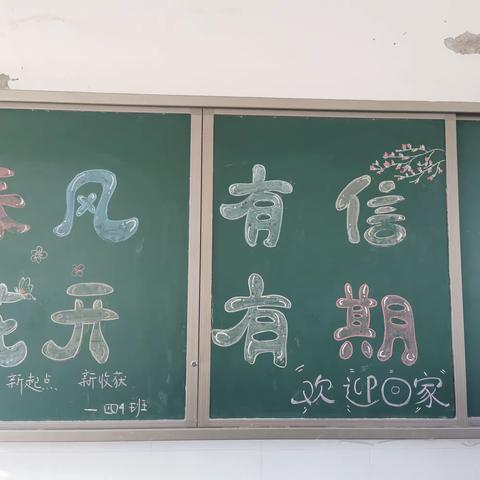 春风 有信
花开 有期
新起点 新收获
—四4班
欢迎回家